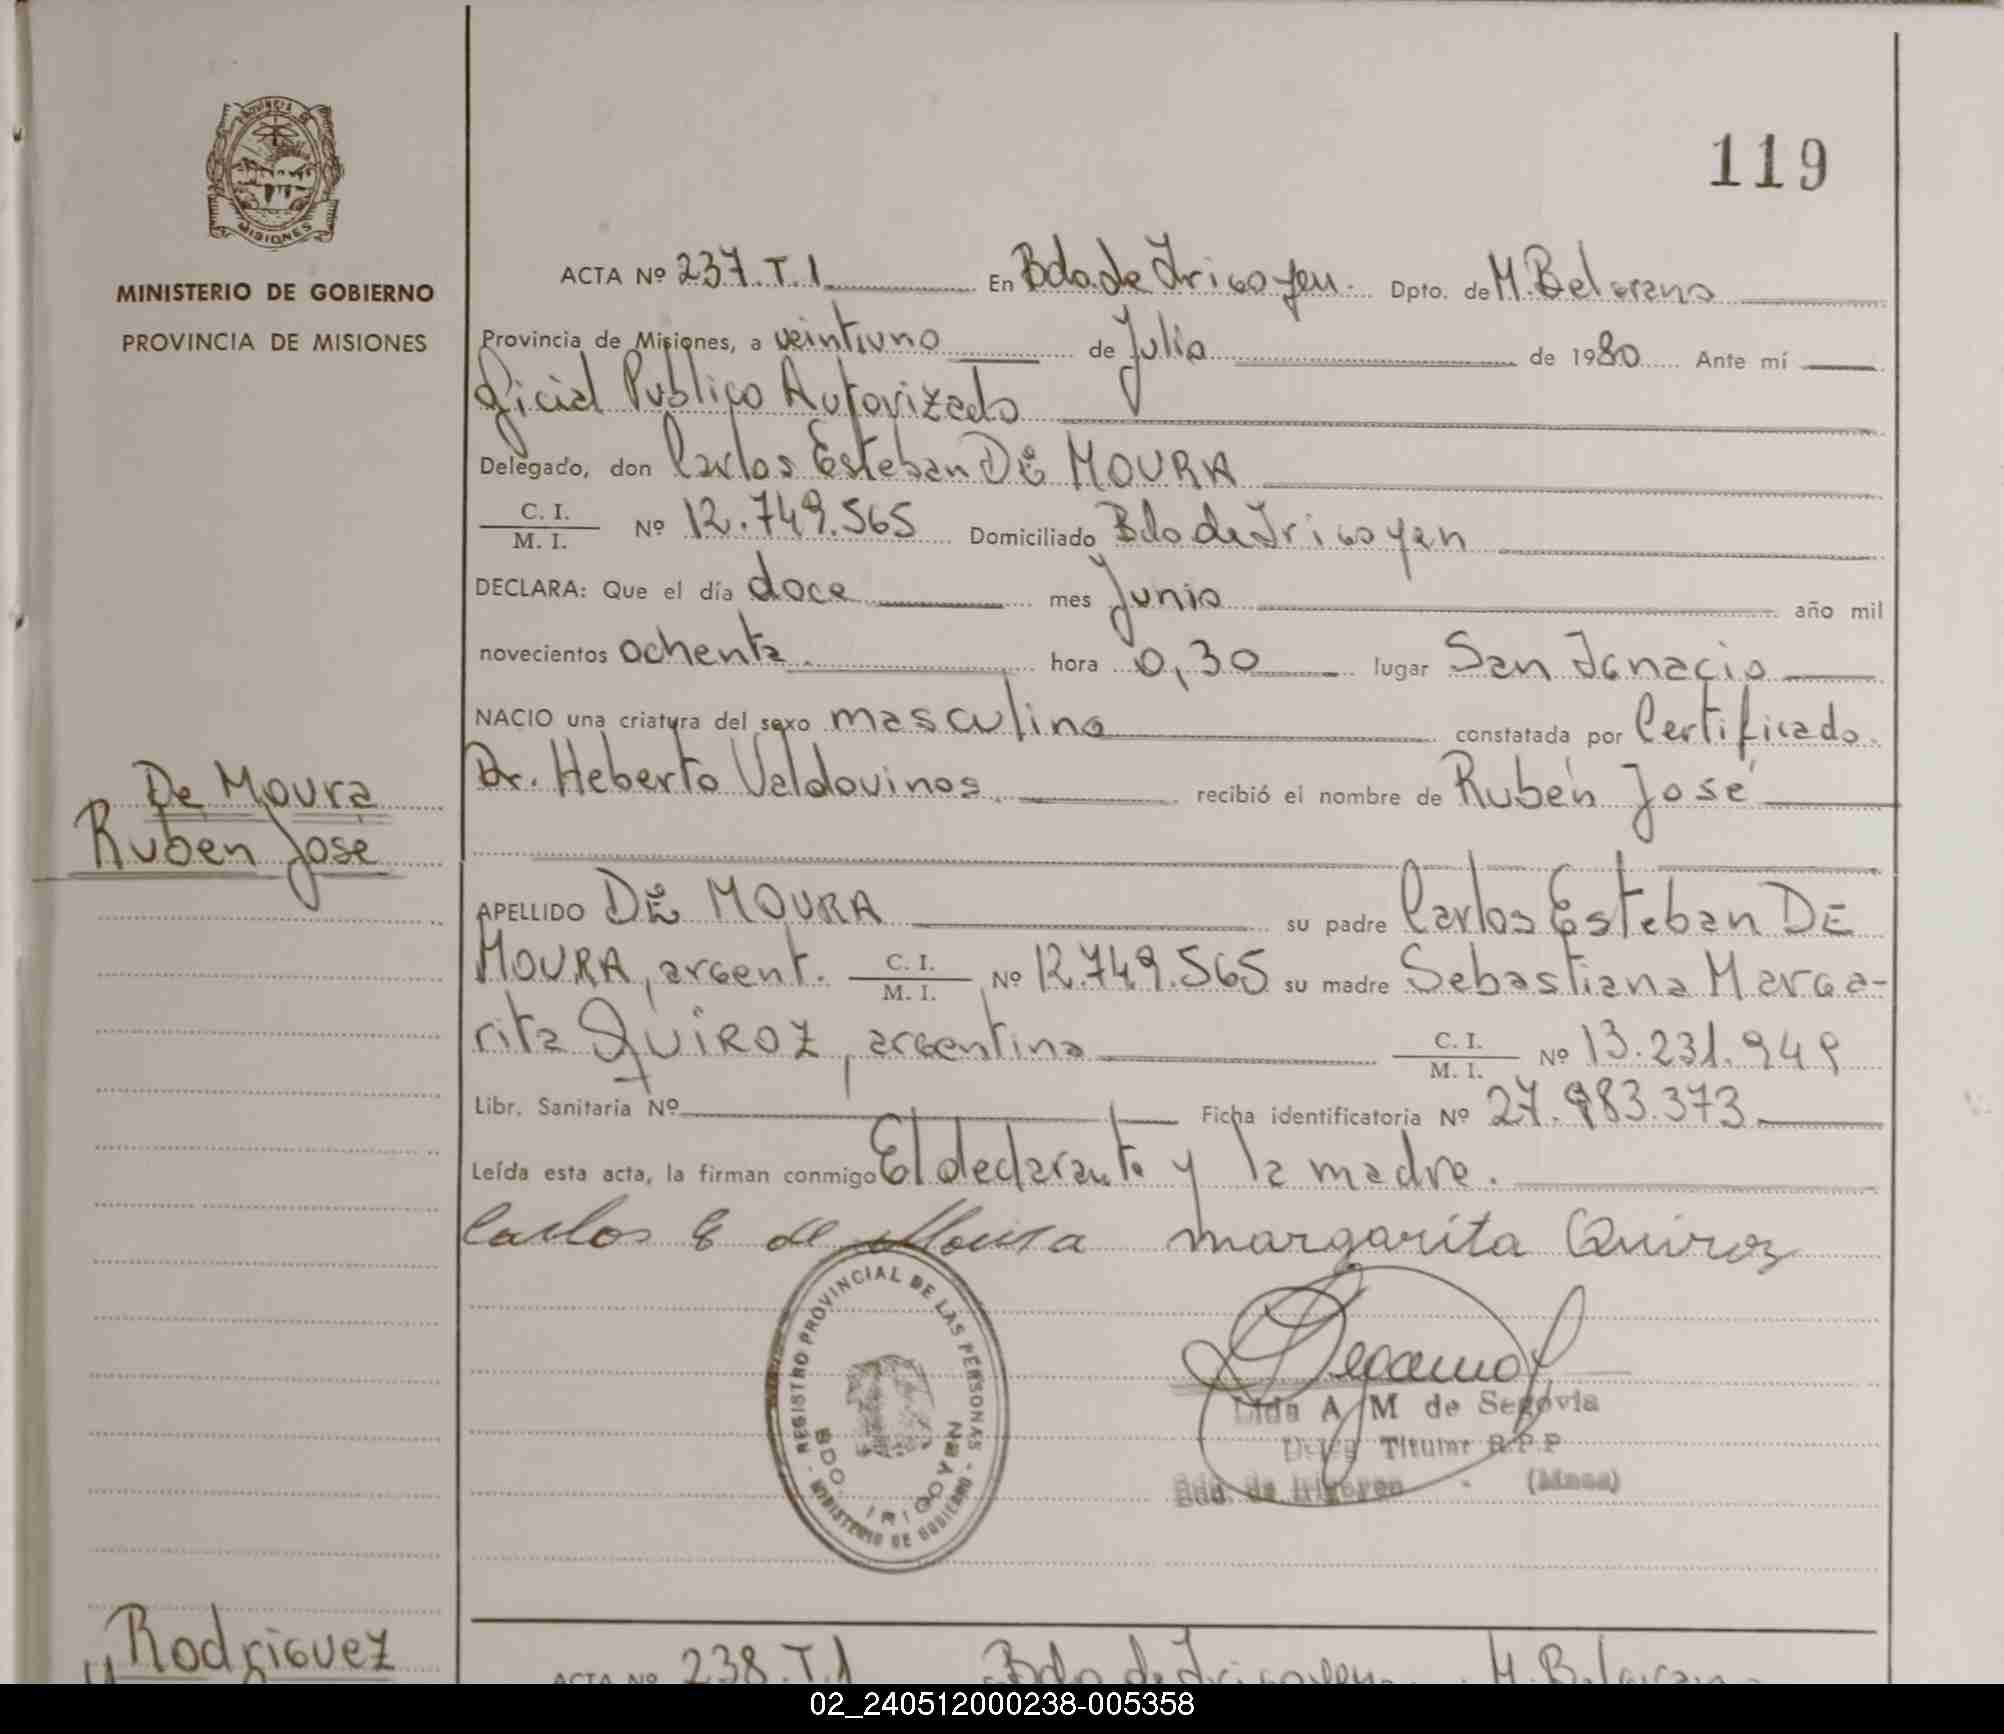 PROVINCIA DE
MISIONES
MINISTERIO DE GOBIERNO
PROVINCIA DE MISIONES
119
ACTA Nº 237.T.1 En Bdo.de Irigoyen. Dpto. de M.Belgrano
Provincia de Misiones, a veintiuno de Julio de 1980 Ante mí
Oficial Publico Autorizado
Delegado, don Carlos Esteban DE MOURA
C. I.
M. I. Nº 12.749.565 Domiciliado Bdo de Irigoyen
DECLARA: Que el día doce mes Junio año mil
novecientos ochenta hora 0,30 lugar San Ignacio
NACIO una criatura del sexo masculino constatada por Certificado.
Dr. Heberto Valdovinos recibió el nombre de Rubén José
De Moura
Rubén José
APELLIDO DE MOURA su padre Carlos Esteban DE
MOURA, argent. C. I.
M. I. Nº 12.749.565 su madre Sebastiana Marga-
rita QUIROZ, argentina C. I.
M. I. Nº 13.231.949
Libr. Sanitaria Nº Ficha identificatoria Nº 27.983.373
Leída esta acta, la firman conmigo El declarante y la madre.
Carlos E de Moura margarita Quiroz
REGISTRO PROVINCIAL DE LAS PERSONAS
MINISTERIO DE GOBIERNO
BDO. IRIGOYEN
A M de Segovia
Deleg Titular R.P.P
Bdo. de Irigoyen - (Mnes)
Rodriguez
ACTA Nº 238.T.1 Bdo de Irigoyen M.Belgrano
02_240512000238-005358